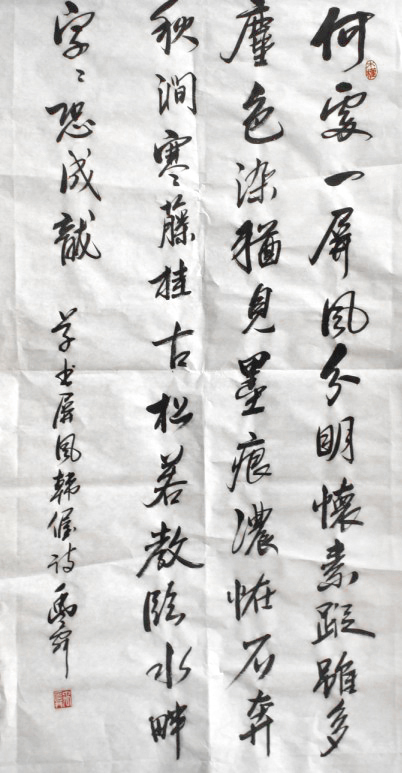 何處一屏風分明懷素蹤雖多
塵色染猶見墨痕濃恠石奔
秋澗寒藤挂古松若教臨水畔
字〻恐成龍
草书屏風韓偓詩